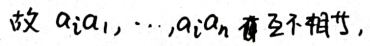 故 aᵢa₁, ⋯, aᵢaₙ 互不相等,